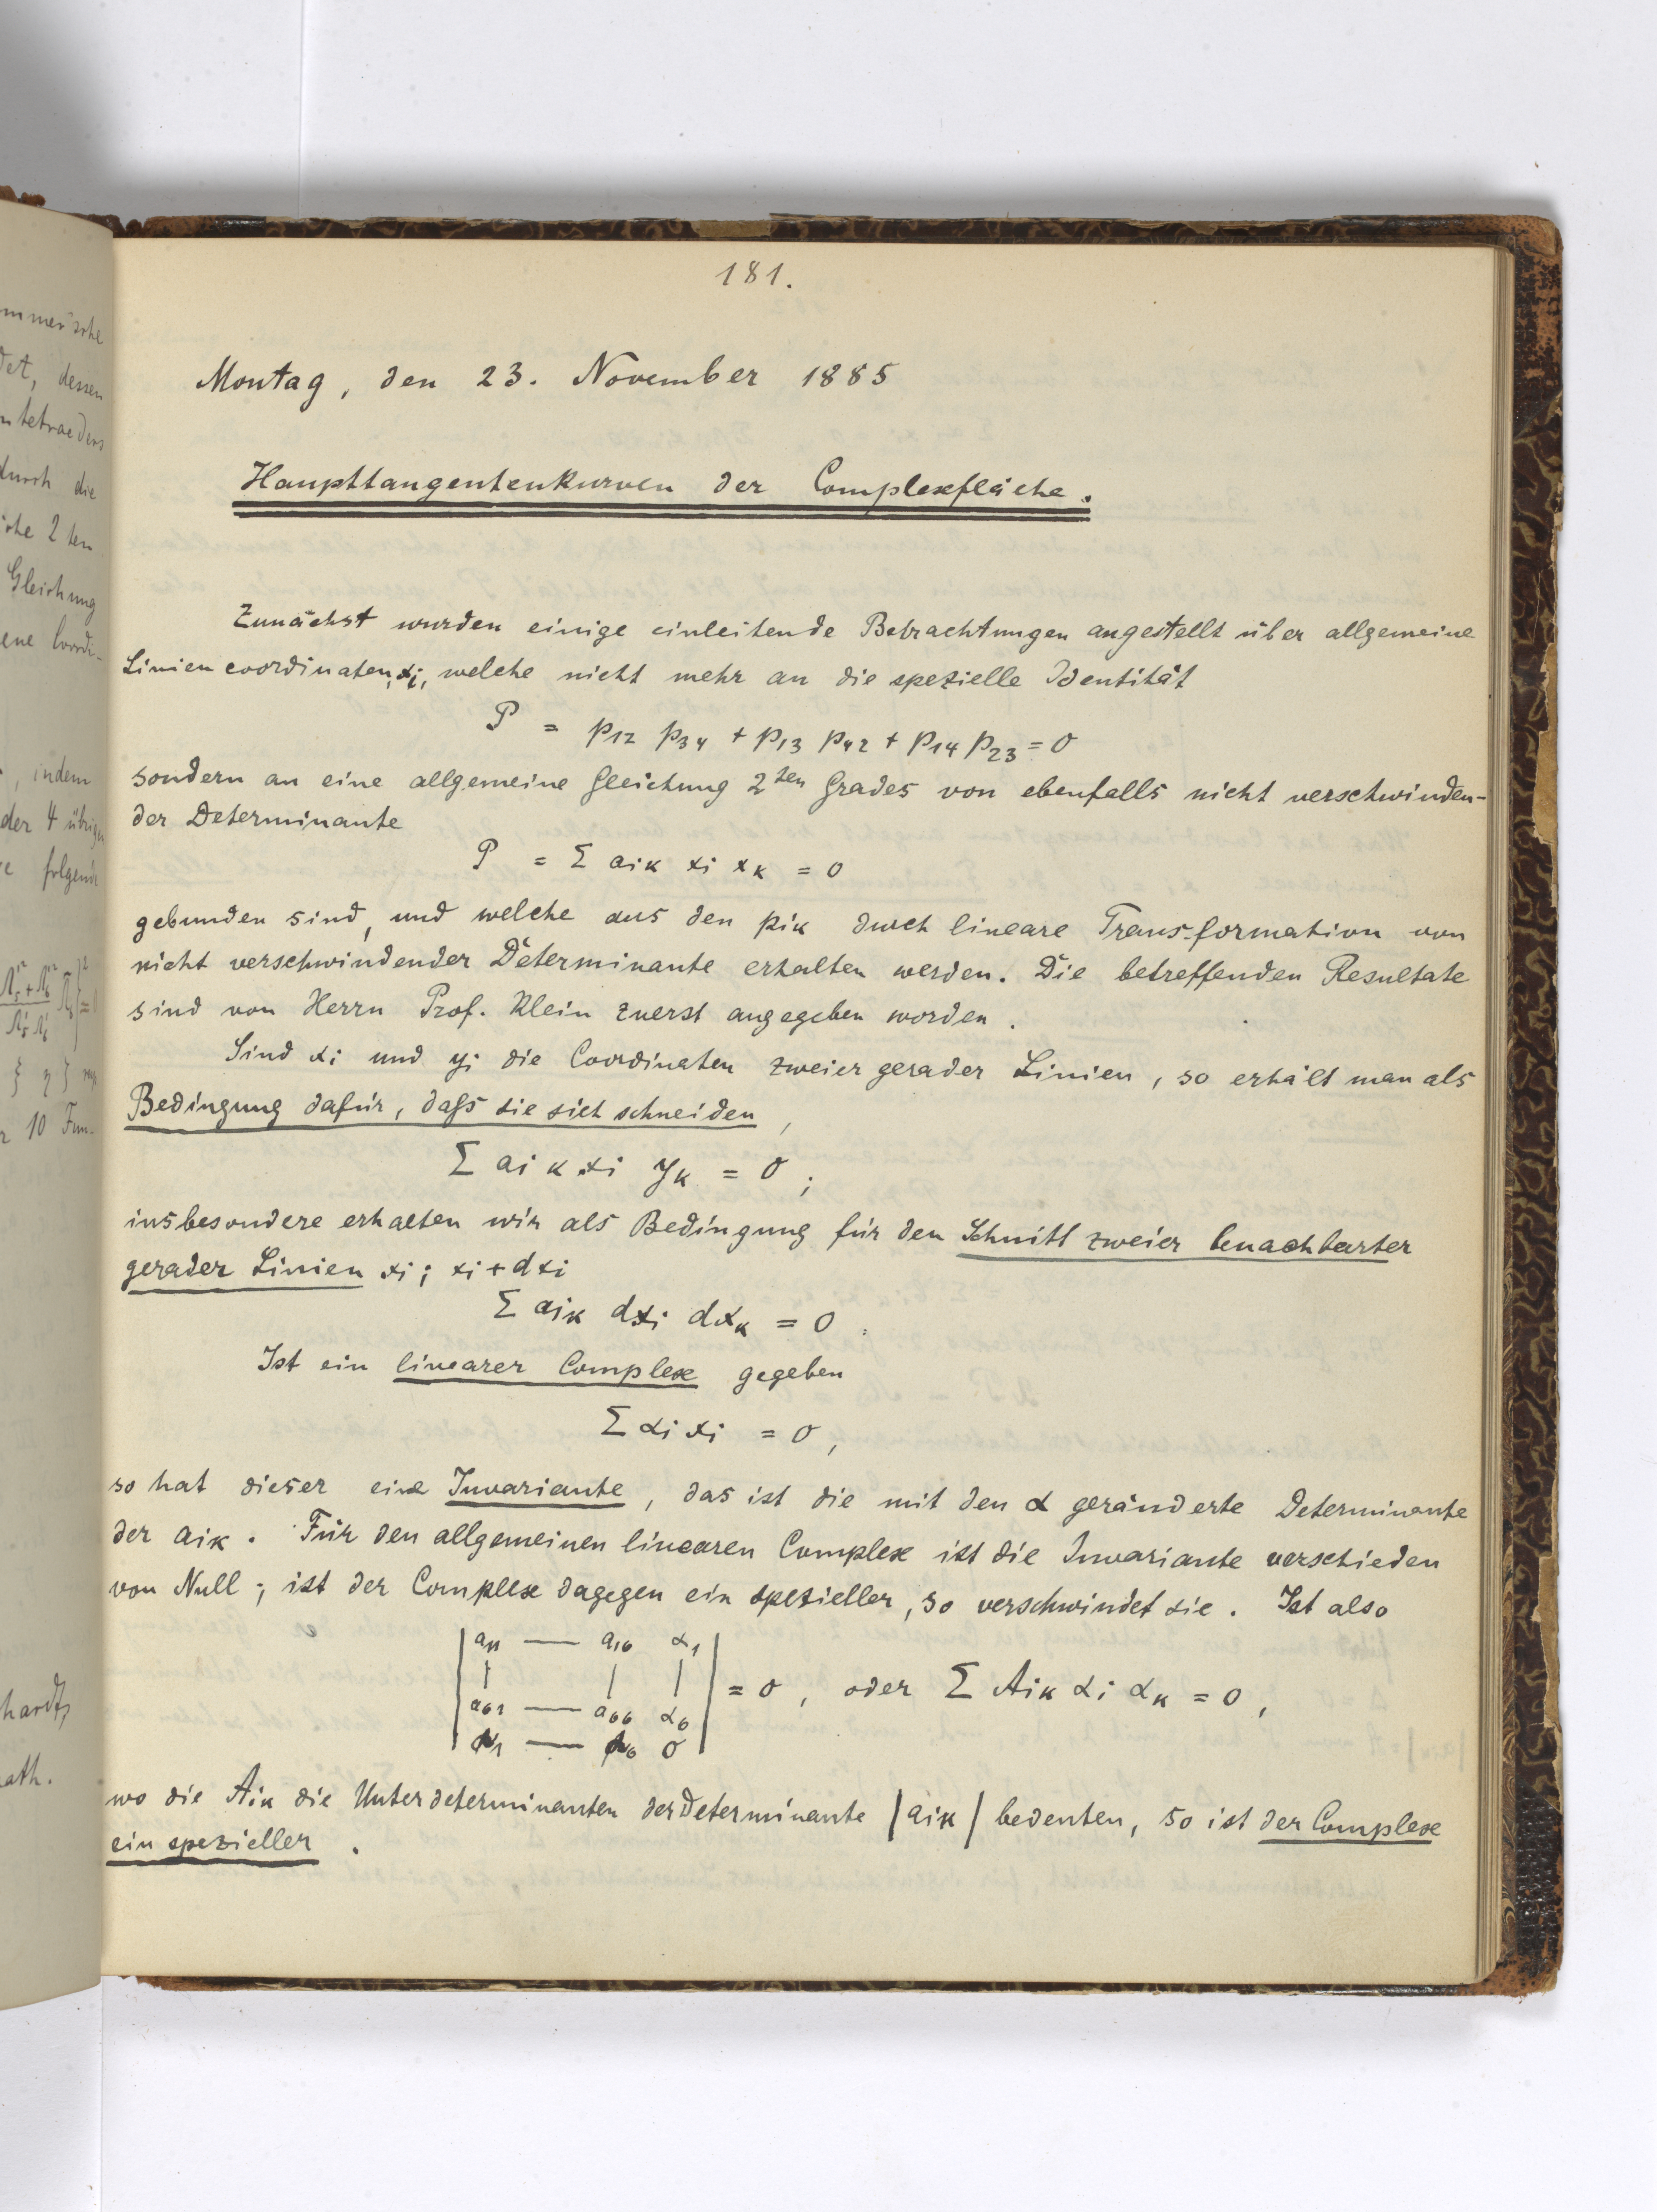 181.
Montag, den 23. November 1885
Haupttangentenkurven der Complexfläche.
Zunächst wurden einige einleitende Betrachtungen angestellt über allgemeine
Liniencoordinaten, xi, welche nicht mehr an die spezielle Identität
P = p12 p34 + p13 p42 + p14 p23 = 0
sondern an eine allgemeine Gleichung 2ten Grades von ebenfalls nicht verschwinden-
der Determinante
P = Σ aik xi xk = 0
gebunden sind, und welche aus den pik durch lineare Transformation von
nicht verschwindender Determinante erhalten werden. Die betreffenden Resultate
sind von Herrn Prof. Klein zuerst angegeben worden.
Sind xi und yi die Coordinaten zweier gerader Linien, so erhält man als
Bedingung dafür, dass sie sich schneiden,
Σ aik xi yk = 0;
insbesondere erhalten wir als Bedingung für den Schnitt zweier benachbarter
gerader Linien xi; xi + dxi
Σ aik dxi dxk = 0.
Ist ein linearer Complex gegeben
Σ αi xi = 0,
so hat dieser eine Invariante, das ist die mit den α geränderte Determinante
der aik. Für den allgemeinen linearen Complex ist die Invariante verschieden
von Null; ist der Complex dagegen ein spezieller, so verschwindet sie. Ist also
| a11 — a16 α1 |
| | | | |
| a61 — a66 α6 | = 0, oder Σ Aik αi αk = 0,
| α1 — α6 0 |
wo die Aik die Unterdeterminanten der Determinante |aik| bedeuten, so ist der Complex
ein spezieller.
mmer'sche
det, dessen
ntetraeders
durch die
che 2ten
Gleichung
ene Coordi-
, indem
der 4 übrigen
folgende
r 10 Fun-
hardt,
ath.